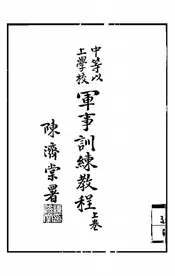 中等以
上學校
軍事訓練教程上卷
陳濟棠署